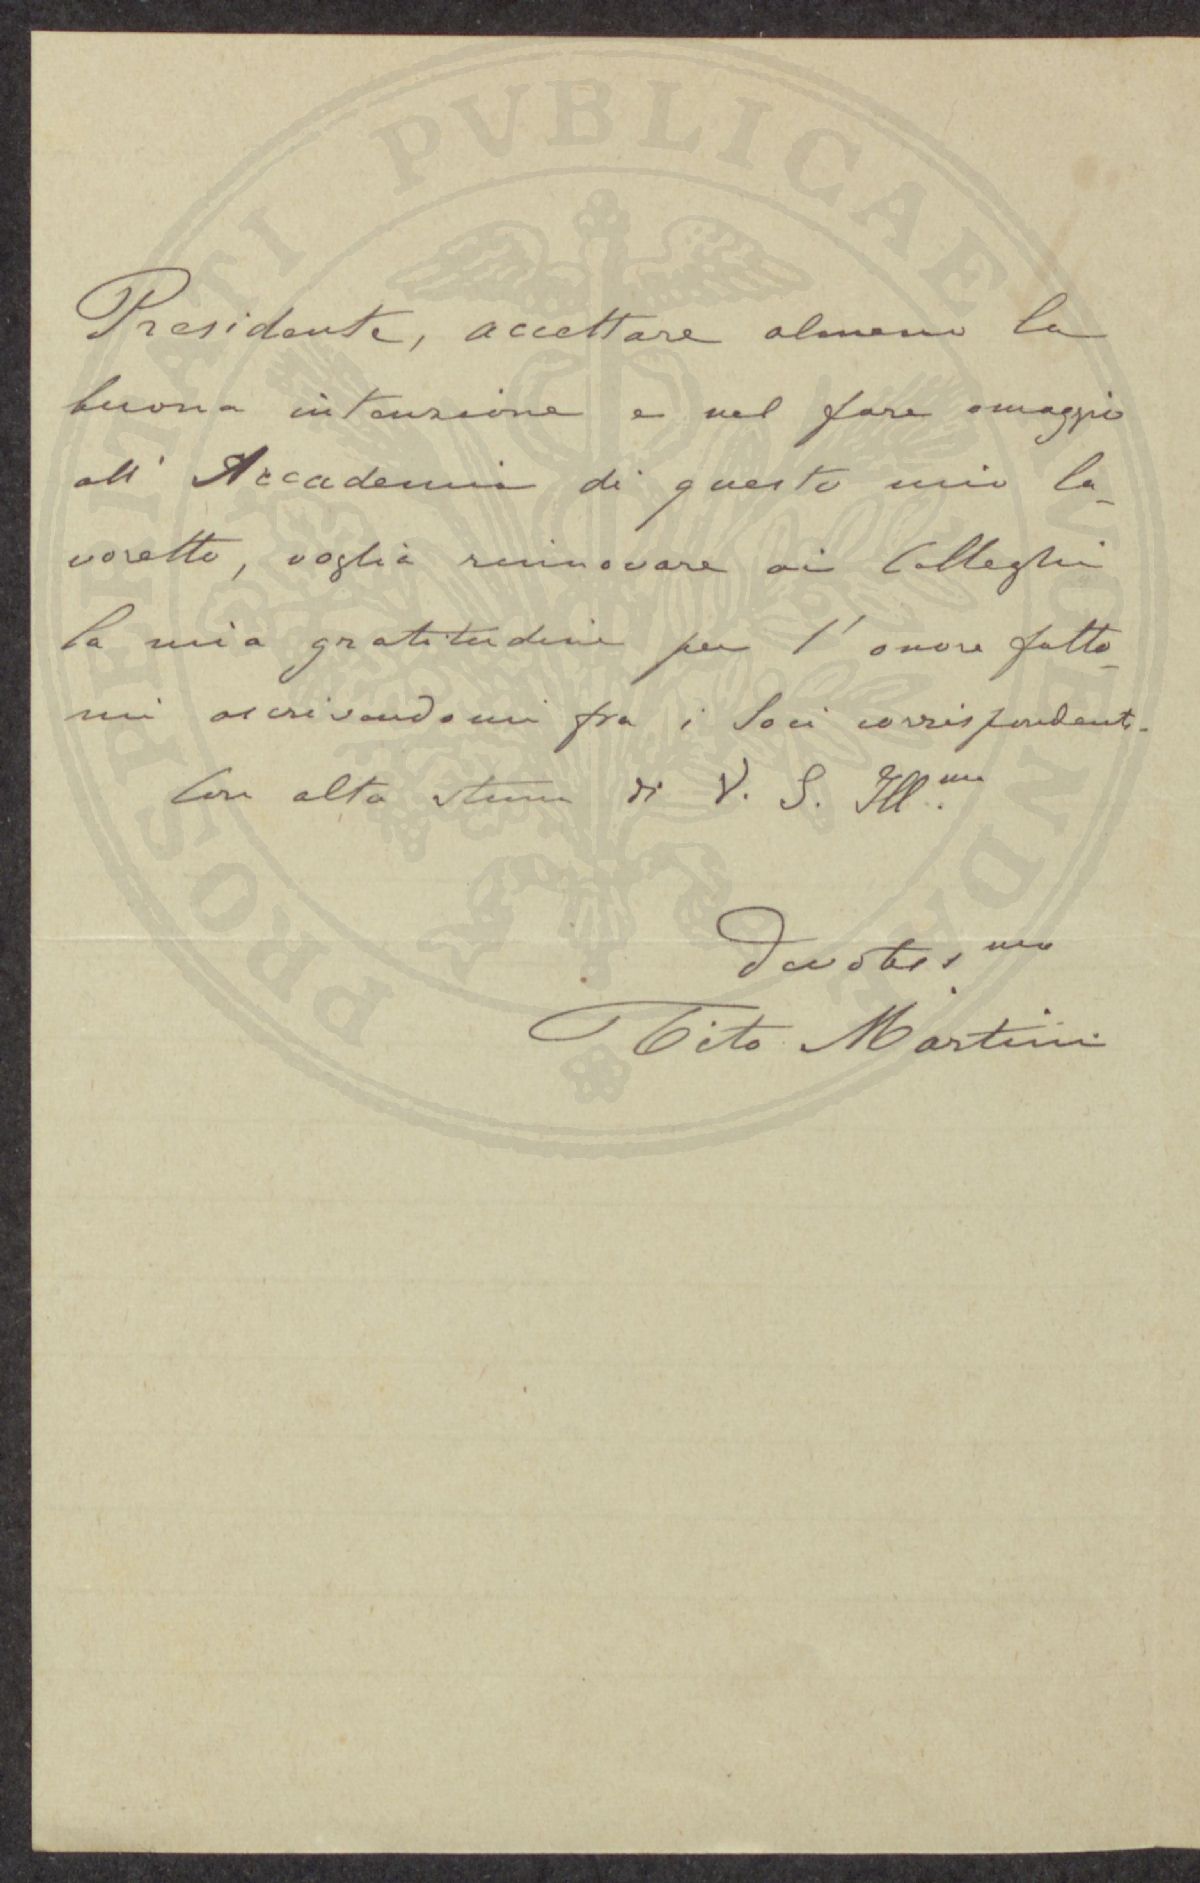 Presidente, accettare almeno la
buona intenzione e nel fare omaggio
all' Accademia di questo mio la-
voretto, voglia rinnovare ai Colleghi
la mia gratitudine per l' onore fatto-
mi ascrivendomi fra i Soci corrispondenti.
Con alta stima di V. S. Ill.mo
Devotiss.mo
Tito Martini
PROSPERITATI PVBLICAE AVGENDAE